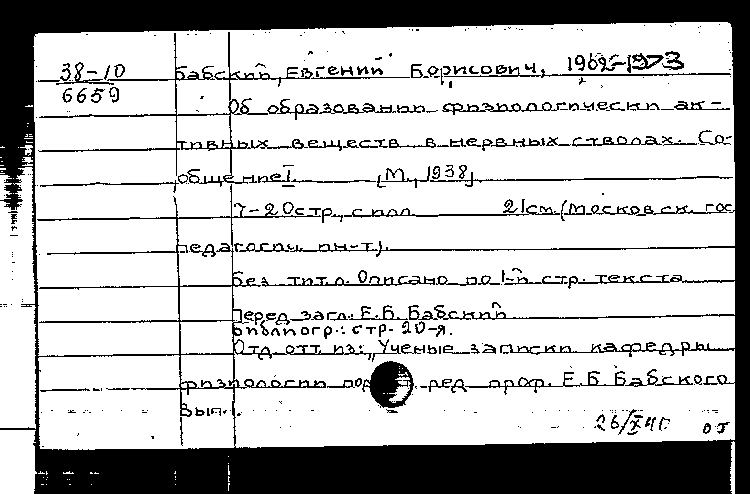 38-10
6659
Бабский, Евгений Борисович, 1902-1973
Об образовании физиологически ак-
тивных веществ в нервных стволах. Со-
общение I. [М., 1938].
7-20 стр., с илл. 21 см. (Московск. гос
педагогич. ин-т).
Без тит. л. Описано по 1-й стр. текста
Перед загл. Е.Б. Бабский
Библиогр.: стр. 20-я.
Отд. отт. из: „Ученые записки кафедры
физиологии под ред. проф. Е.Б. Бабского
Вып. I.
26/X 40